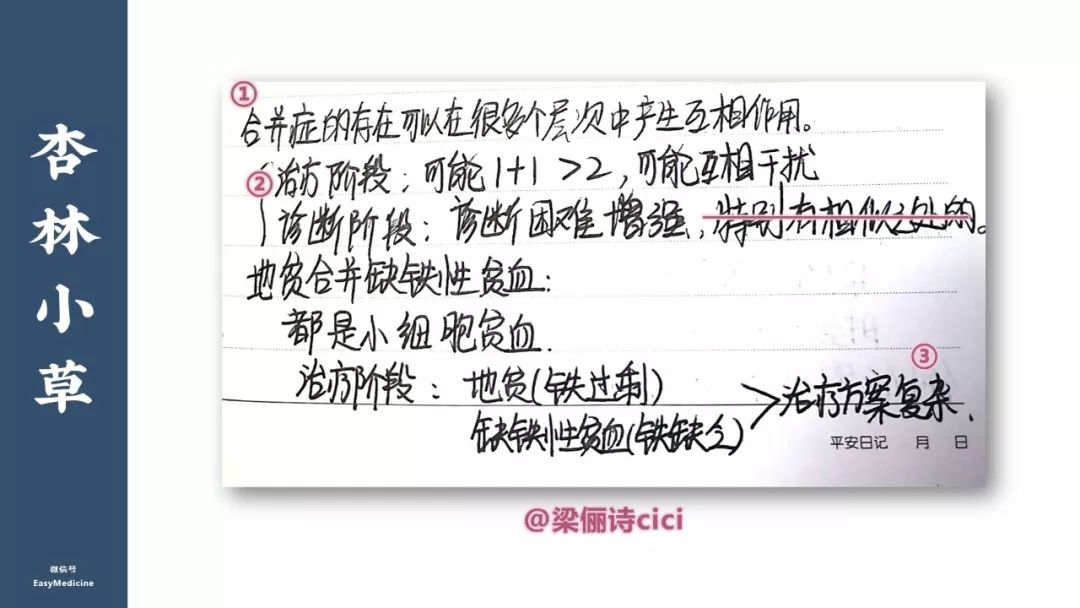 杏林小草
微信号
EasyMedicine
①
合并症的存在可以在很多个层次中产生互相作用。
② 治疗阶段：可能1+1>2，可能互相干扰
诊断阶段：诊断困难增强，特别有相似之处的。
地贫合并缺铁性贫血：
都是小细胞贫血.
治疗阶段：地贫(铁过剩)
缺铁性贫血(铁缺乏)
③
>治疗方案复杂.
平安日记 月 日
@梁俪诗cici